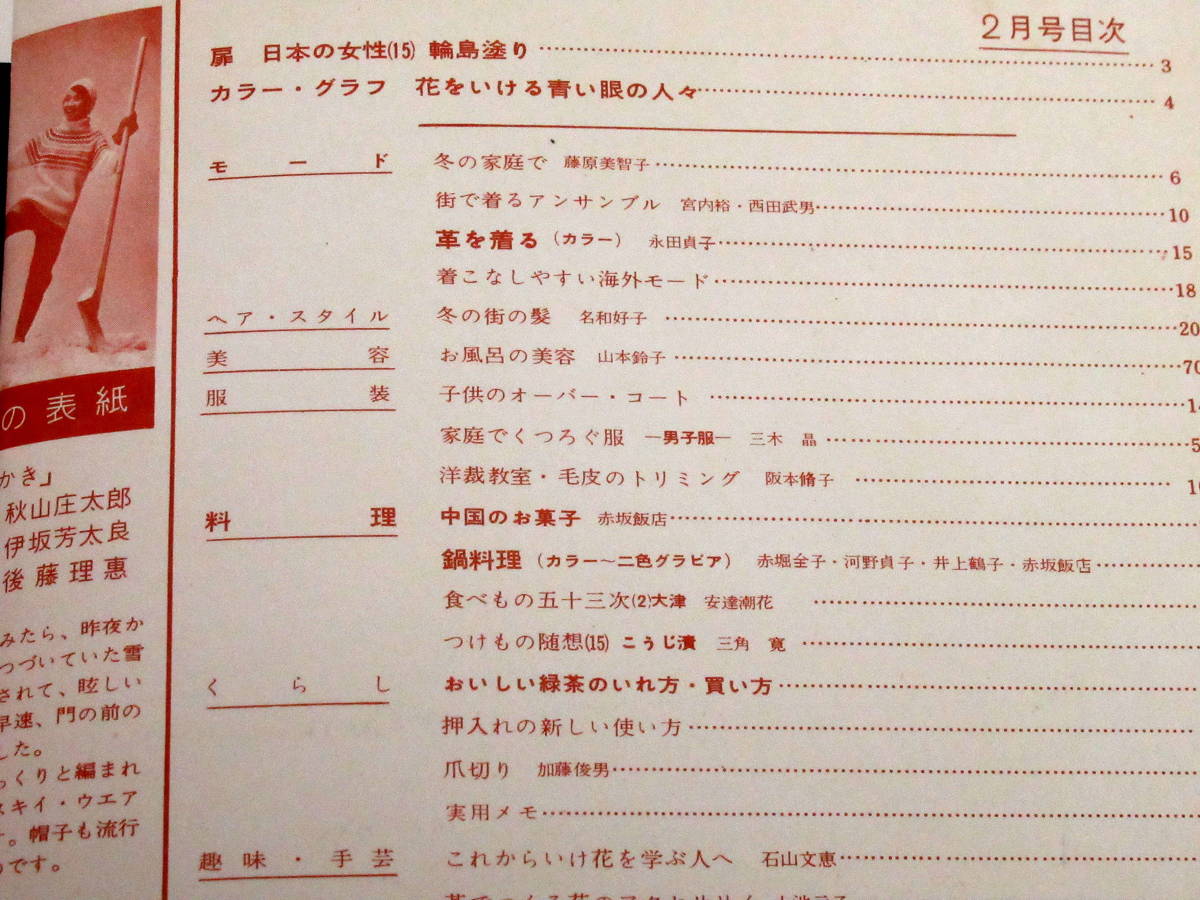 の表紙
かき」
秋山庄太郎
伊坂芳太良
後藤理恵
みたら、昨夜か
つづいていた雪
されて、眩しい
早速、門の前の
した。
っくりと編まれ
スキイ・ウエア
。帽子も流行
のです。
2月号目次
扉 日本の女性(15) 輪島塗り…3
カラー・グラフ 花をいける青い眼の人々…4
モード 冬の家庭で 藤原美智子…6
街で着るアンサンブル 宮内裕・西田武男…10
革を着る(カラー) 永田貞子…15
着こなしやすい海外モード…18
ヘア・スタイル 冬の街の髪 名和好子…20
美容 お風呂の美容 山本鈴子…70
服装 子供のオーバー・コート…14
家庭でくつろぐ服 ―男子服― 三木 晶…5
洋裁教室・毛皮のトリミング 阪本脩子…
料理 中国のお菓子 赤坂飯店…
鍋料理(カラー〜二色グラビア) 赤堀全子・河野貞子・井上鶴子・赤坂飯店…
食べもの五十三次(2)大津 安達潮花…
つけもの随想(15) こうじ漬 三角 寛…
くらし おいしい緑茶のいれ方・買い方…
押入れの新しい使い方…
爪切り 加藤俊男…
実用メモ…
趣味・手芸 これからいけ花を学ぶ人へ 石山文恵…